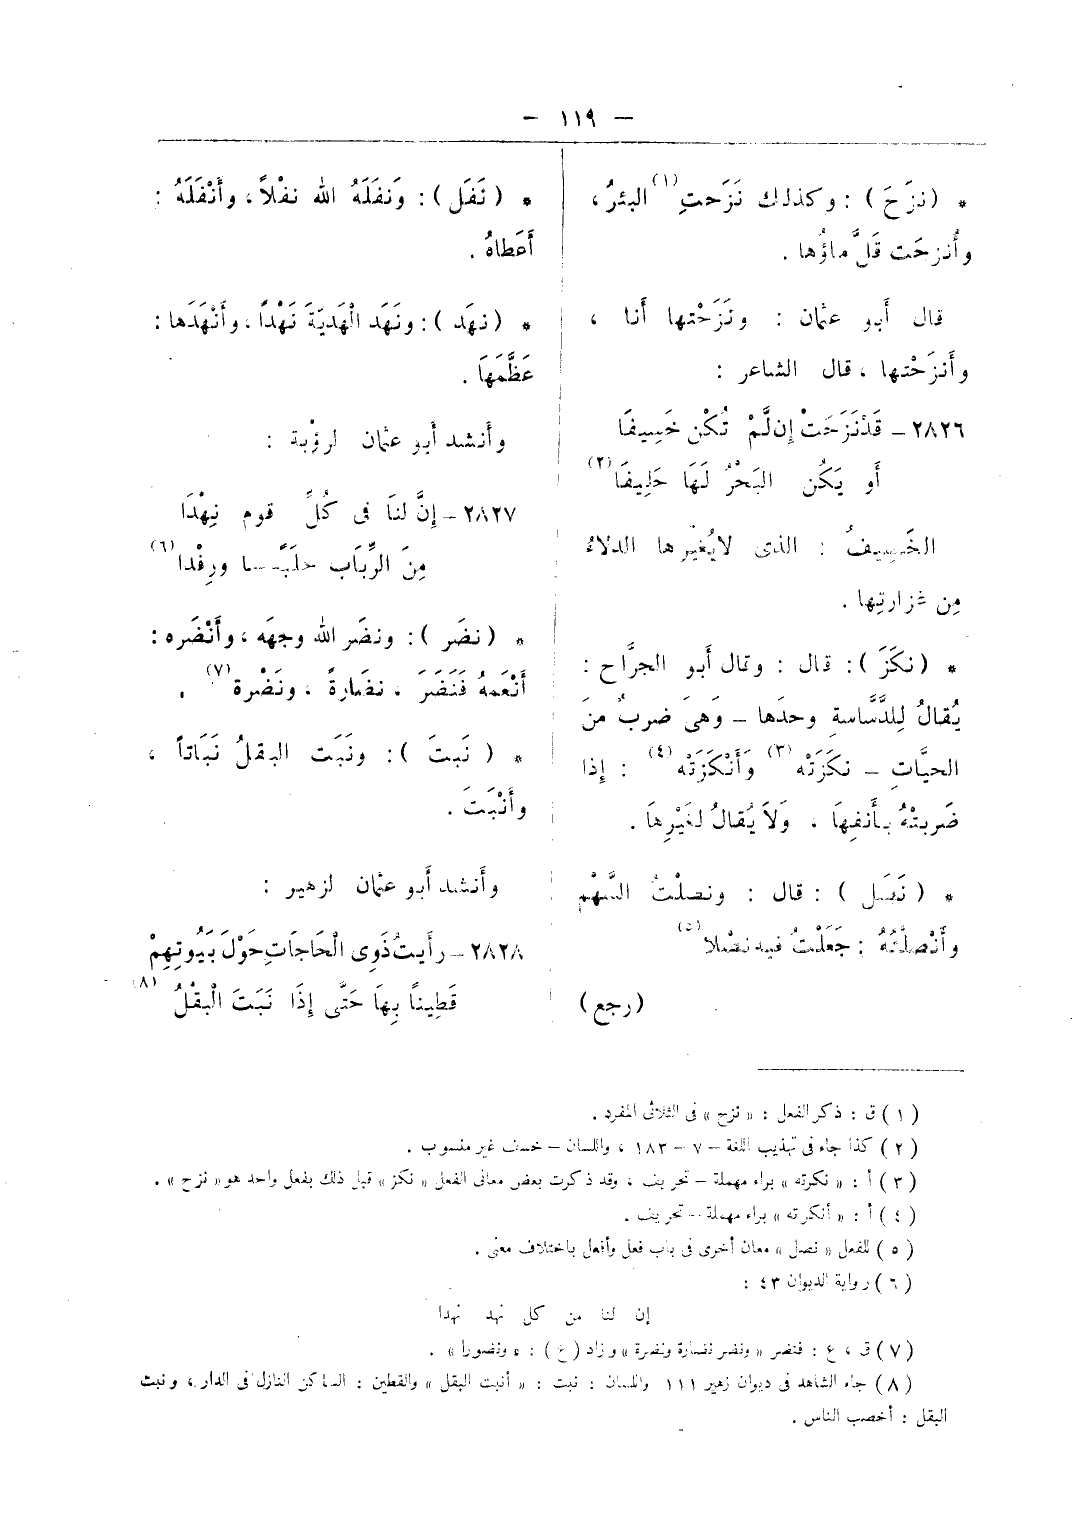 — ١١٩ —
* (نزَحَ) : وكذلك نَزَحتِ(١) البئرُ ،
وأُنزحَت قَلَّ ماؤُها .
قال أبو عثمان : ونَزَحْتها أنا ،
وأنزَحْتها ، قال الشاعر :
٢٨٢٦ – قَدْنَزَحَتْ إن لَّمْ تُكْن خَسِيفَا
أو يَكُن البَحْرُ لَهَا حَلِيفَا(٢)
الخَسِيفُ : الذى لايُغيرها الدلاءُ
مِن غزارتِها .
* (نكَزَ) : قال : وقال أبو الجرَّاح :
يُقالُ لِلدَّسَّاسةِ وحدَها – وَهىَ ضربٌ منَ
الحيَّاتِ – نكَزَتْه(٣) وَأنْكَزَتْه(٤) : إذا
ضَربتْهُ بأنفِهَا ، وَلاَ يُقالُ لغَيْرِهَا .
* (نَصَل) : قال : ونصلْتُ السَّهْم
وأنْصلْتُهُ : جَعَلْتُ فيه نصْلا(٥)
(رجع)
* (نَفَل) : وَنفَلَهُ الله نفْلاً ، وأنْفَلَهُ :
أعَطاهُ .
* (نهَد) : ونهَد الْهَديّةَ نَهْداً ، وأنْهَدَها :
عَظَّمَهَا .
وأنشد أبو عثمان لرؤْبة :
٢٨٢٧ – إنَّ لنَا فى كُلِّ قوم نِهْدَا
مِنَ الرِّبَاب حلَبًا ورِفْدا(٦)
* (نضَر) : ونضَر الله وجهَه ، وأنْضَره :
أنْعَمهُ فَنَضَرَ ، نضَارةً ، ونَضْرة(٧) .
* (نَبتَ) : ونَبَت البقلُ نَبَاتاً ،
وأنْبَتَ .
وأنشد أبو عثمان لزهير :
٢٨٢٨ – رأيتُ ذَوِى الْحَاجَاتِ حَوْلَ بَيُوتِهِمْ
قَطِيناً بِهَا حَتَّى إذَا نَبَتَ الْبقْلُ(٨)
(١) ق : ذكر الفعل : « نزح » فى الثلاثى المفرد .
(٢) كذا جاء فى تهذيب اللغة – ٧ – ١٨٣ ، واللسان – خسف غير منسوب .
(٣) أ : « نكرته » براء مهملة – تحريف ، وقد ذكرت بعض معانى الفعل « نكز » قبل ذلك بفعل واحد هو « نزح » .
(٤) أ : « أنكرته » براء مهملة – تحريف .
(٥) للفعل « نصل » معان أخرى فى باب فعل وأفعل باختلاف معنى .
(٦) رواية الديوان ٤٣ :
إن لنا من كل نهد نهدا
(٧) ق ، ع : فنضر « ونضر نضارة ونضرة » وزاد (ع) : « ونضورا » .
(٨) جاء الشاهد فى ديوان زهير ١١١ واللسان : نبت : « أنبت البقل » والقطين : الساكن النازل فى الدار ، ونبت
البقل : أخصب الناس .